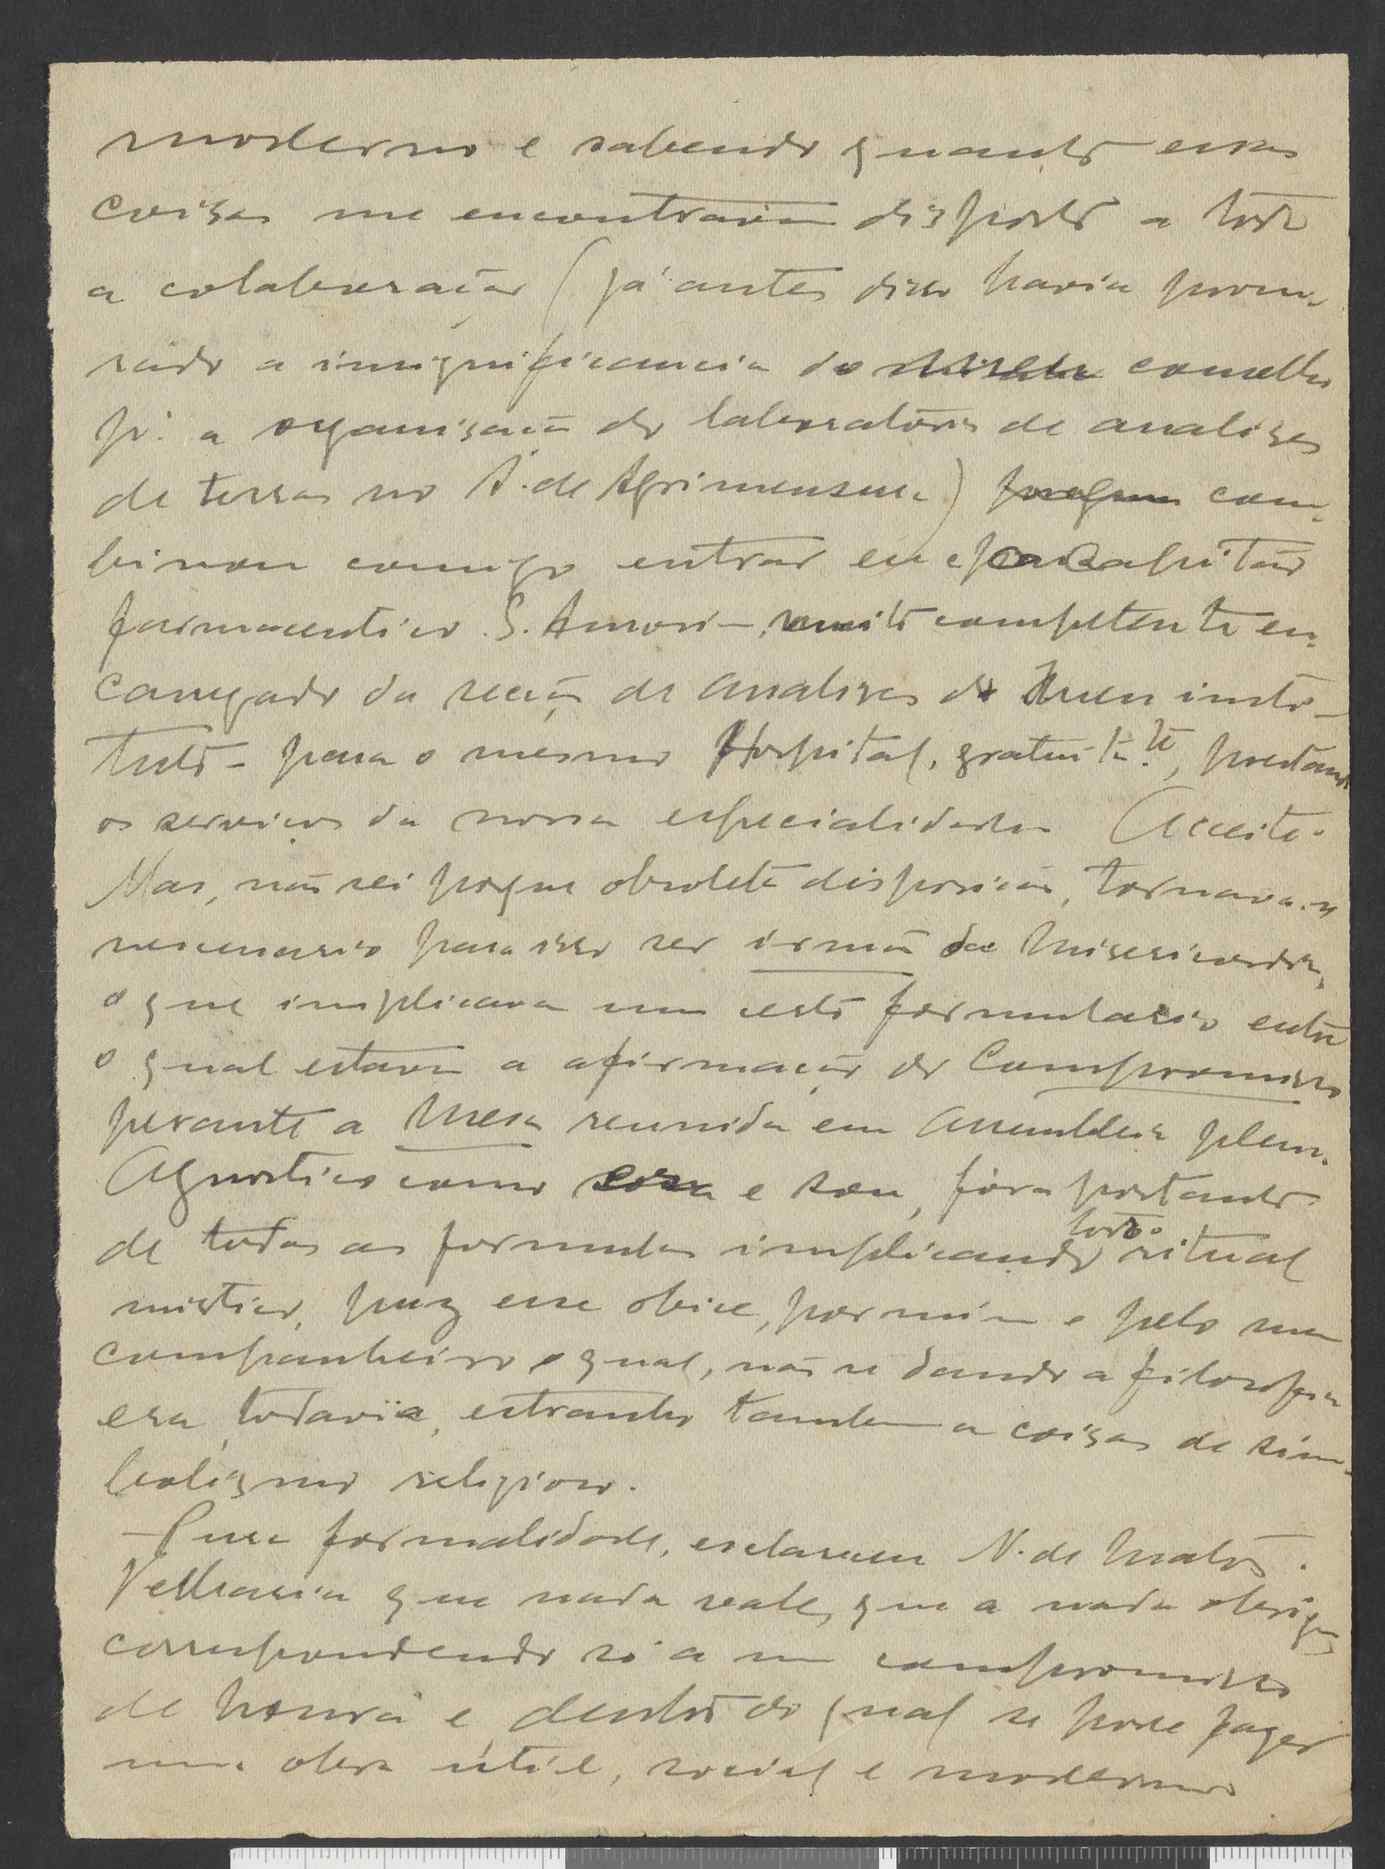 moderno e sabendo quanto essas
coisas me encontravam disposto a toda
a colaboração (já antes disso havia procu-
rado a insignificancia do conselho
pª a organisação do laboratorio de analises
de terras no S. de Agrimensura) com-
binou comigo entrar eu e o capitão
farmaceutico S. Amorim, muito competente en-
carregado da secção de analises do meu insti-
tuto - para o mesmo Hospital, gratuita.te, prestando
os serviços da nossa especialidade. Acceitei.
Mas, não sei porque obsoleta disposição, tornava-se
necessario para isso ser irmão da Misericordia,
o que implicava um certo formulario entre
o qual estava a afirmação do Compromisso
perante a Mesa reunida em assembleia plena.
Agnostico como era e sou, fóra portanto
de todas as formulas implicando todo o ritual
mistico, puz esse obice, por mim e pelo meu
companheiro o qual, não se dando a filosofia
era, todavia, estranho tambem a coisas de sim-
bolismo religioso.
- Pura formalidade, esclareceu N. de Matos.
Velharia que nada vale, que a nada obriga,
correspondendo só a um compromisso
de honra e dentro do qual se pode fazer
uma obra util, social e moderna